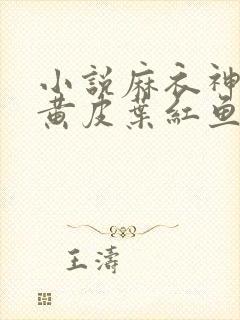 小説麻衣神
黄皮葉紅魚
王濤